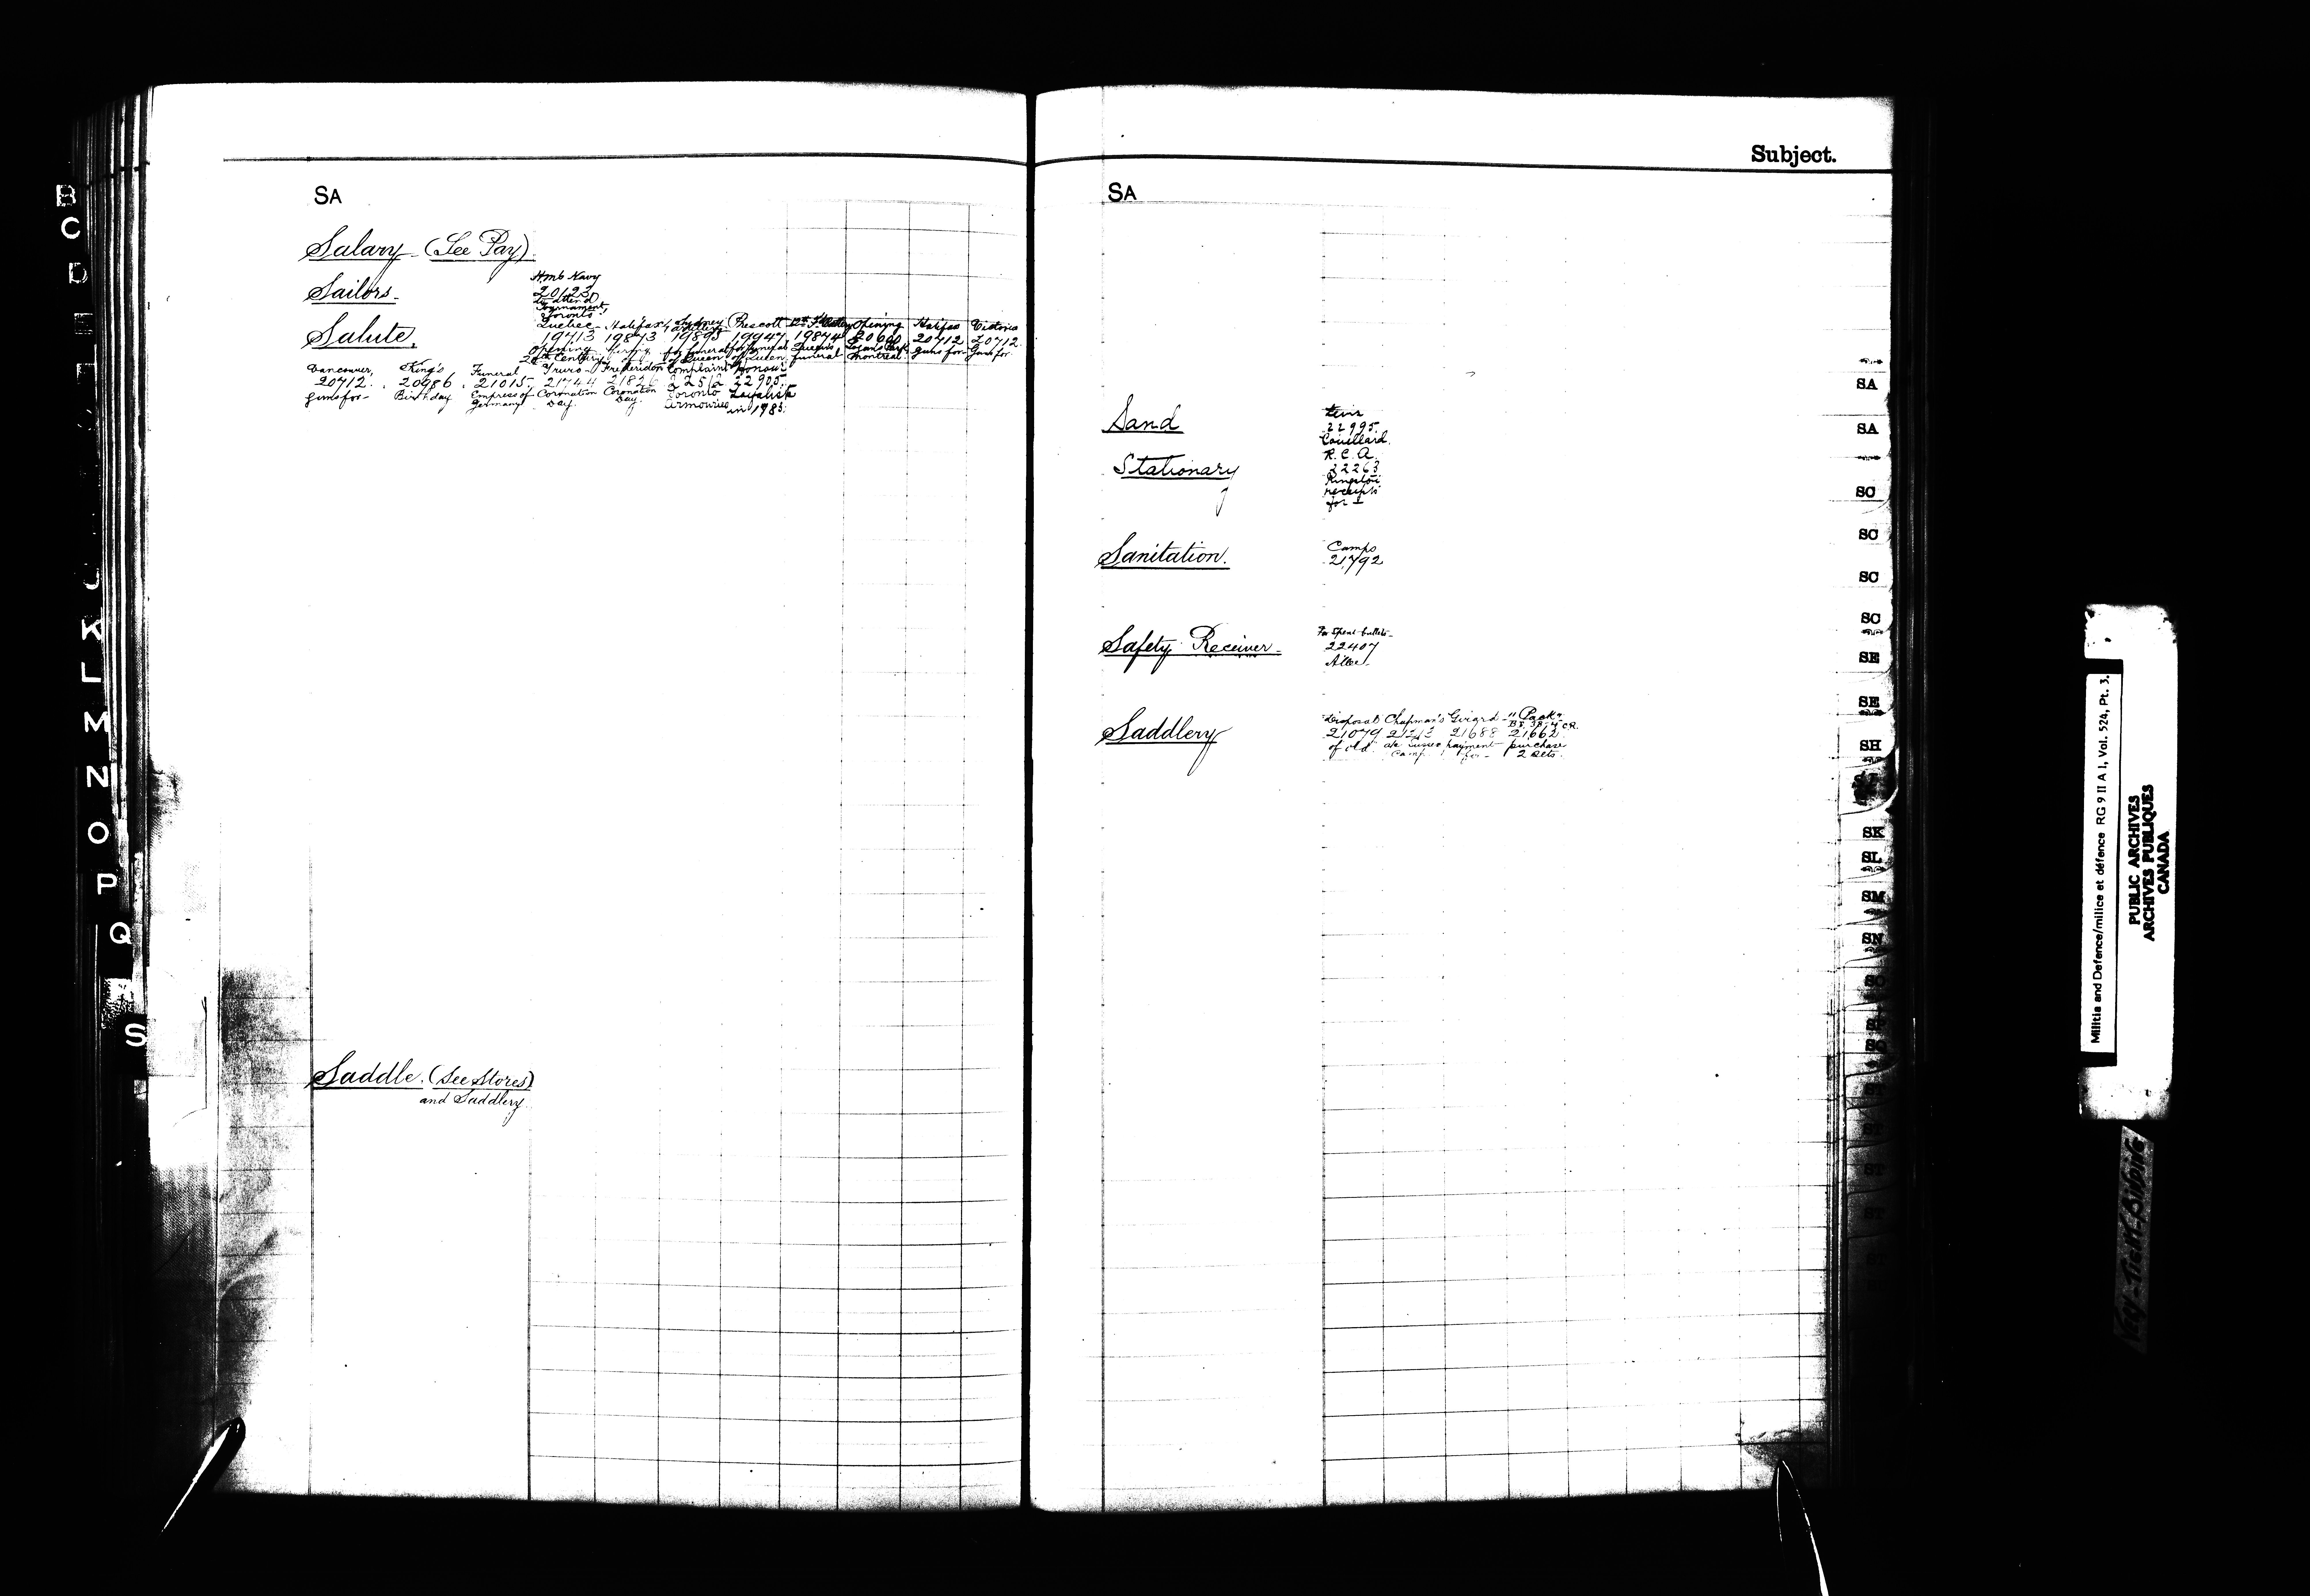 Subject.
SA
Salary (See Pay).
Sailors.
H.M's Navy
20123
to attend
Tournament
Toronto
Salute.
Quebec Halifax Sydney Prescott Opening Halifax Victoria
19713 19873 19895 19947 19874 20660 20712 20712
Opening firing for funeral for funeral Queens Logans Park guns for guns for
20th Century of Queen of Queen funeral Montreal
Vancouver, King's Funeral Truro Fredericton Complaint Honour
20712 20986 21015 21744 21826 22512 22905
guns for Birthday Empress of Coronation Coronation Toronto Loyalists
Germany Day. Day. Armouries in 1783.
Saddle. (See Stores)
and Saddlery
SA
Sand
Levis
22995
Couillard.
Stationary
R.C.A.
22263
Kingston
receipts
for
Sanitation.
Camps
21792
Safety Receiver
For Spent bullets
22407
Saddlery
Disposal Chapman's Girard "Pack"
21079 21212 21688 21662
of old a/c Sussex payment purchase
Camp for 2 sets.
B
C
D
E
J
K
L
M
N
O
P
Q
R
S
SA
SA
SC
SC
SC
SC
SE
SE
SH
SK
SL
SM
SN
SO
ST
ST
ST
Militia and Defence/milice et défence RG 9 II A 1, Vol. 524, Pt. 3.
PUBLIC ARCHIVES
ARCHIVES PUBLIQUES
CANADA